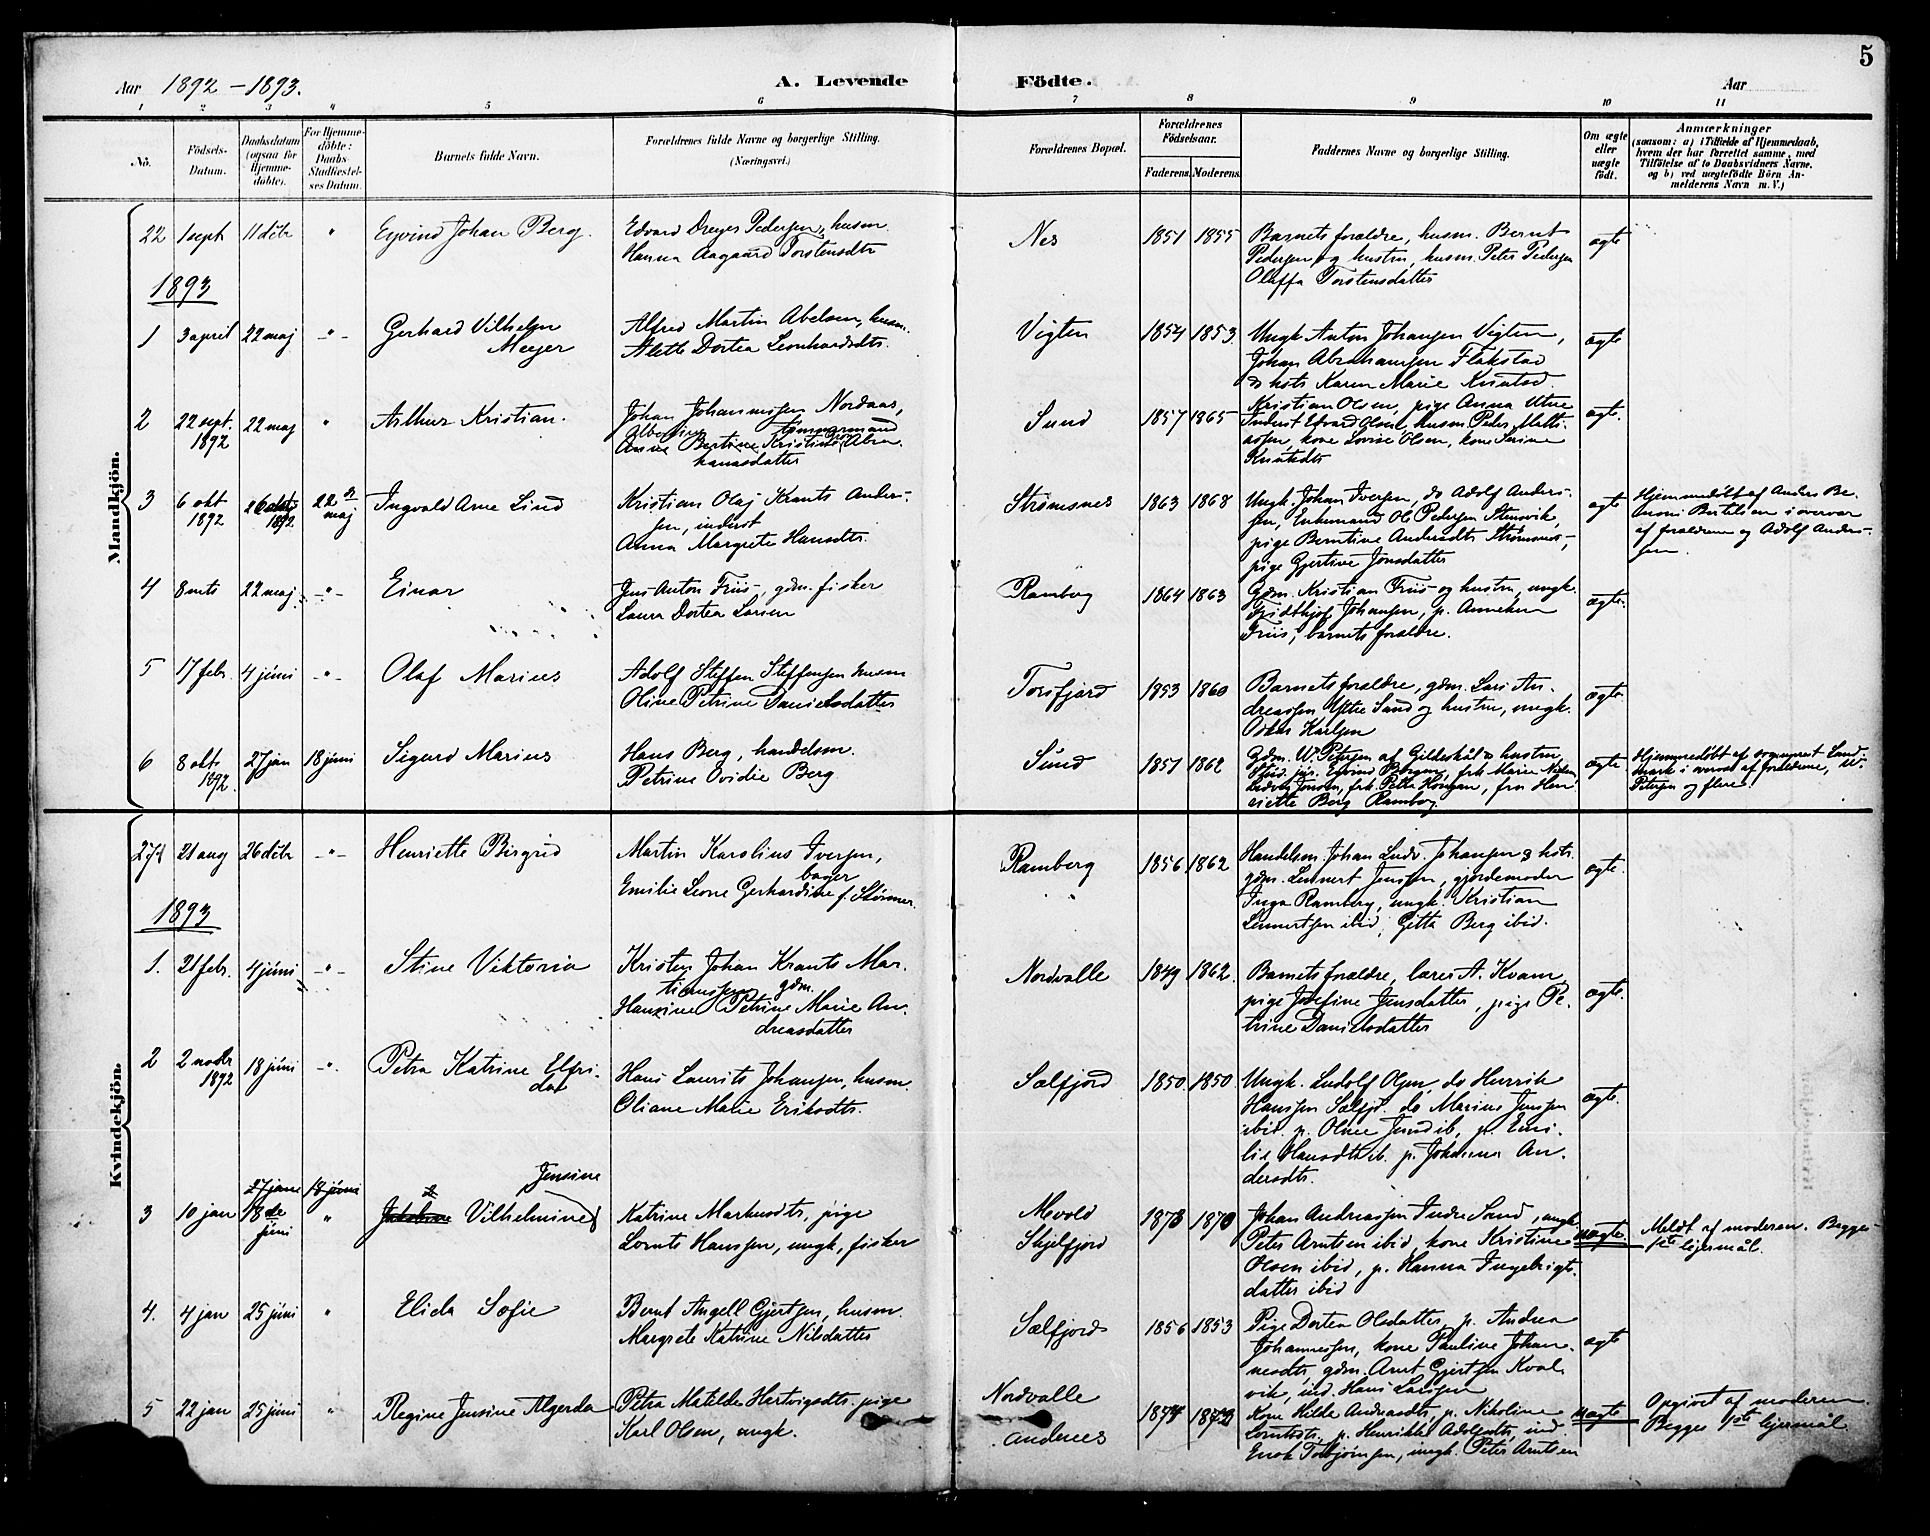 5
Aar 1892 – 1893.
A. Levende Födte.
Aar
1 2 3 4 5 6 7 8 9 10 11
No.
Födsels-
Datum.
Daabsdatum
(ogsaa för
Hjemme-
döbte).
For Hjemme-
döbte:
Daabs-
Stadfæstel-
ses Datum.
Barnets fulde Navn.
Forældrenes fulde Navne og borgerlige Stilling.
(Næringsvei.)
Forældrenes Bopæl.
Forældrenes
Födselsaar.
Faderens. Moderens.
Faddernes Navne og borgerlige Stilling.
Om ægte
eller
uægte
födt.
Anmærkninger
(saasom: a) i Tilfælde af Hjemmedaab,
hvem der har forrettet samme, med
Tilföielse af to Daabsvidners Navne,
og b) ved uægtefödte Börn An-
melderens Navn m. V.)
Mandkjön.
22 1 sept 11 dëbr " Eyvind Johan Berg. Edvard Dreyer Pedersen, husm.
Hanna Aagaard Torstensdtr
Nes 1851 1855 Barnets forældre, husm. Bernt
Pedersen og hustru, husm. Peter Pedersen
Oluffa Torstensdatter
ægte
1893
1 3 april 22 maj -"- Gerhard Vilhelm
Meyer
Alfred Martin Abelsen, husm.
Alette Dortea Leonhardsdtr.
Vigten 1854 1853. Ungk. Anton Johansen Vigten,
Johan Abrahamsen Flakstad
& hstr. Karen Marie Knutsd.
ægte
2 22 sept. 1892 22 maj " Arthur Kristian.
Johan Johannissen Nordaas,
Albertine tømmermand
Anna Bertine Kristine Abra-
hamsdatter
Sund 1857 1865 Kristian Olsen, pige Anna Utne
Inderst Edvard Olsen, husm. Peder Matti-
assen, kone Lovise Olsen, kone Serine
Knutsdtr
ægte.
3 6 okt 1892 26 oktb 1892 22de maj Ingvald Arne Lind
Kristian Olaj Krants Anders-
sen, inderst
Anna Margrete Hansdtr.
Strømsnes 1863 1868 Ungk. Johan Iversen, do Adolf Anders-
sen, Enkemand Ol. Pedersen Stensvik,
pige Berntine Andersdtr Strømsnes,
pige Gjertine Jonsdatter
ægte
Hjemmedöbt af Anders Be-
roni Bertelsen i overvær
af forældrene og Adolf Anders-
sen.
4 8 mts 22 maj. -"- Einar
Jens Anton Friis, gdm. fisker
Laura Dortea Larsen
Ramberg 1864 1863 Gdm. Kristian Friis og hustru, ungk.
Fridthjof Johansen, p. Anneken
Friis, barnets forældre.
ægte.
5 17 febr. 4 júni -"- Olaf Marius
Adolf Steffen Steffensen husm
Oline Petrine Danielsdatter
Torsfjord 1853 1860 Barnets forældre, gdm. Lars An-
dreassen Yttre Sund og hustru, ungk.
Oskar Karlsen
ægte.
6 8 okt. 1892 27 jan 18 júni Sigurd Marius
Hans Berg, handelsm.
Petrine Ovidie Berg
Sund 1851 1862 Gdm. W. Petersen af Gildeskål & hustru
Stud. jur. Eyvind Borgen, frk. Marie Nielsen,
Ludvig Jensen, frk. Petra Hongan, fru Hen-
riette Berg Ramberg
ægte
Hjemmedöbt af sogneprest Land-
mark i overvær af forældrene, W.
Petersen og flere.
Kvindekjön.
27 21 aug 26 dëbr -"- Henriette Birgrid
Martin Karolius Iversen,
bager
Emilie Leone Gerhardine f. Størmer.
Ramberg 1856 1862 Handelsm. Johan Ludv. Johansen & hstr.
gdm. Lennert Jenssen, gjordemoder
Inga Ramberg, ungk. Kristian
Lennertsen ibid, Gitta Berg ibid.
ægte.
1893
1. 21 febr. 4 júni -"- Stine Viktoria
Kristen Johan Krants Mar-
tinussen, gdm.
Hansine Petrine Marie An-
dreasdatter
Nordvalle 1849 1862. Barnets forældre, lærer A. Kvam
pige Josefine Jensdatter, pige Pe-
trine Danielsdatter
ægte.
2 2 novbr 1892 18 júni -"- Petra Katrine Elfri-
da
Hans Laurits Johansen, husm.
Oliane Marie Eriksdtr.
Sælfjord 1850 1850. Ungk. Ludolf Olsen, do Henrik
Hanssen Sælfj. do Marius Jenssen
ibid. p. Oline Jensd ib, p. Emi-
lie Hansdtr ib. p. Johanna An-
dersdtr.
ægte.
3 10 jan 27 janr 18 júni 18de júni " Jakobine Vilhelmine Jensine
Katrine Markusdtr, pige
Lornts Hanssen, ungk, fisker
Mvold
Skjelfjord
1873 1870 Johan Andreassen Indre Sund, ungk.
Peter Arntsen ibid, kone Kristine
Olsen ibid, p. Hanna Ingebrigts-
datter ibid
uægte.
Meldt af moderen. Begges
1ste lejermål.
4. 4 jan 25 júni " Elida Sofie
Bernt Angell Gjertsen, husm.
Margrete Katrine Nilsdatter
Sælfjord 1856 1853 Pige Dortea Olsdatter, p. Andrea
Johannessen, kone Pauline Johan-
nesdtr, gdm. Arnt Gjertsen Kval-
vik, ind. Hans Larssen
ægte
5 22 jan 25 júni " Regine Jensine Algerda
Petra Matilde Hartvigsdtr. pige
Karl Olsen, ungk.
Nordvalle
Andenes
1874 1872 Kone Hilda Andreasdtr, p. Nikoline
Lorntsdtr, p. Henrikke Adolfsdtr, ind.
Enok Torbjörnsen, ungk. Peter Arntsen
uægte
Opgivet af moderen.
Begges 1ste lejermål